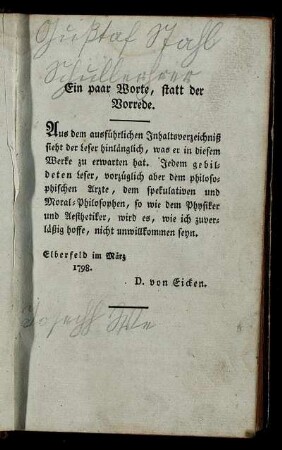 Gustaf Stahl
Schullehrer
Ein paar Worte, statt der
Vorrede.
Aus dem ausführlichen Inhaltsverzeichniß
sieht der Leser hinlänglich, was er in diesem
Werke zu erwarten hat. Jedem gebil-
deten Leser, vorzüglich aber dem philoso-
phischen Arzte, dem spekulativen und
Moral-Philosophen, so wie dem Physiker
und Aesthetiker, wird es, wie ich zuver-
läßig hoffe, nicht unwillkommen seyn.
Elberfeld im März
1798.
D. von Eicken.
Joseph